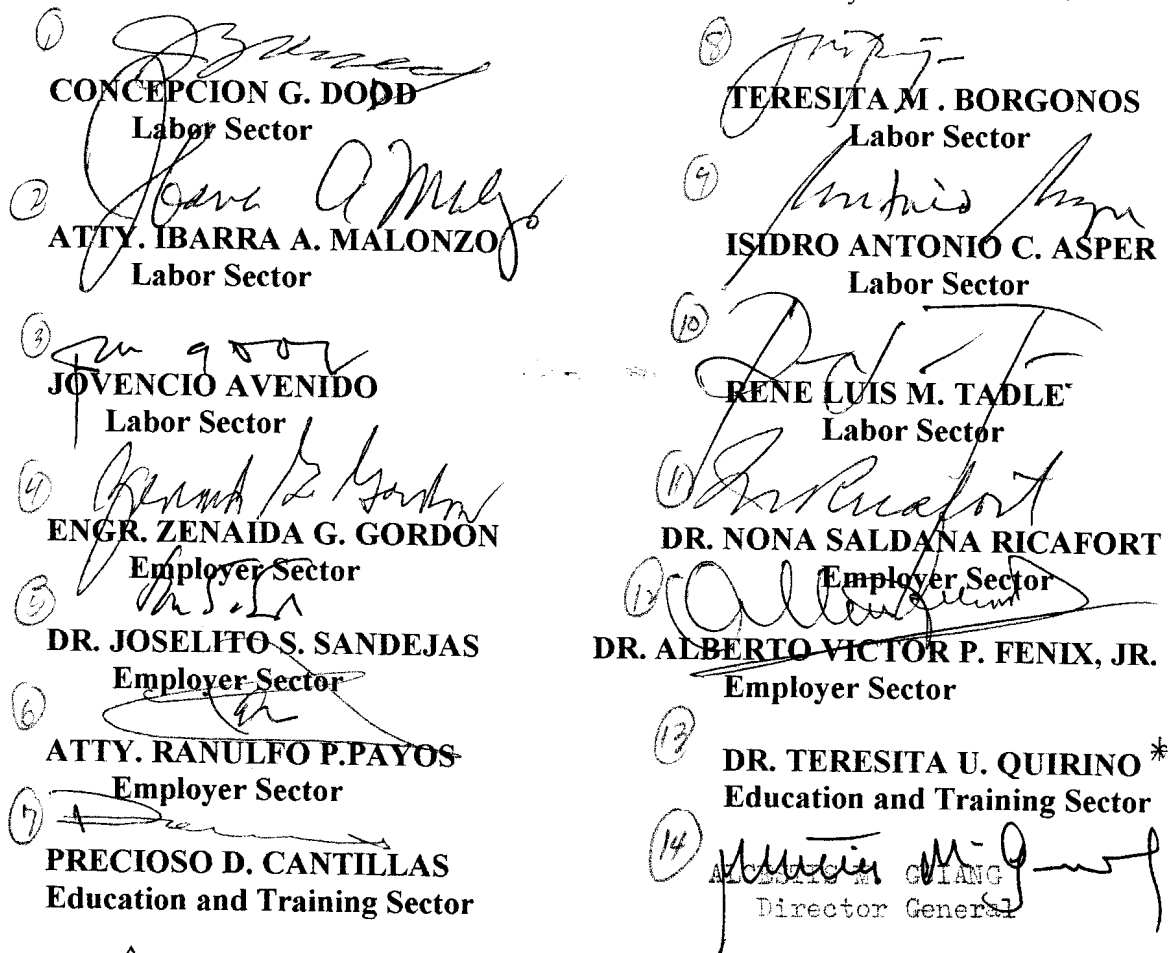 1
CONCEPCION G. DODD
Labor Sector
2
ATTY. IBARRA A. MALONZO
Labor Sector
3
JOVENCIO AVENIDO
Labor Sector
4
ENGR. ZENAIDA G. GORDON
Employer Sector
5
DR. JOSELITO S. SANDEJAS
Employer Sector
6
ATTY. RANULFO P.PAYOS
Employer Sector
7
PRECIOSO D. CANTILLAS
Education and Training Sector
8
TERESITA M . BORGONOS
Labor Sector
9
ISIDRO ANTONIO C. ASPER
Labor Sector
10
RENE LUIS M. TADLE
Labor Sector
11
DR. NONA SALDANA RICAFORT
Employer Sector
12
DR. ALBERTO VICTOR P. FENIX, JR.
Employer Sector
13
DR. TERESITA U. QUIRINO *
Education and Training Sector
14
M. GUIANG
Director General